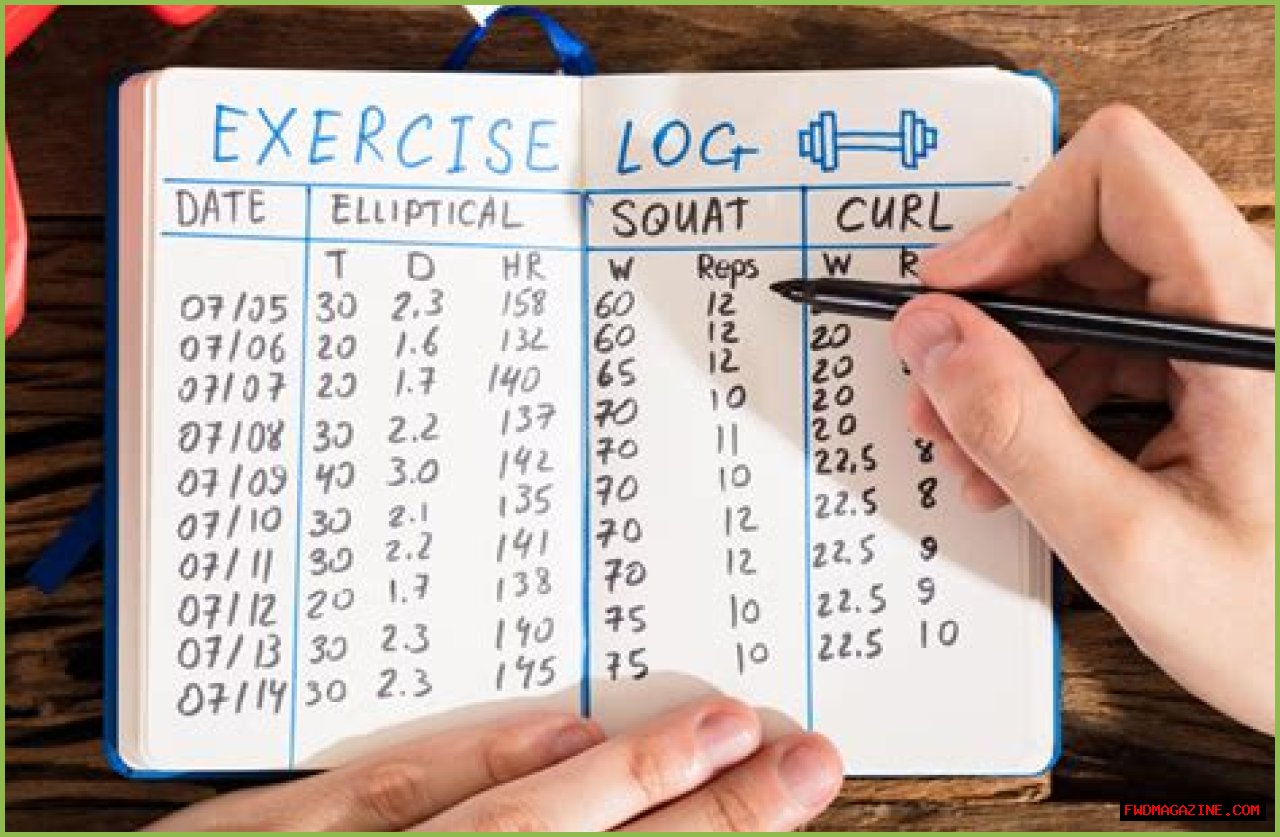 EXERCISE LOG
DATE ELLIPTICAL SQUAT CURL
T D HR W Reps W
07/05 30 2.3 158 60 12
07/06 20 1.6 132 60 12 20
07/07 20 1.7 140 65 12 20
07/08 30 2.2 137 70 10 20
07/09 40 3.0 142 70 11 20
07/10 30 2.1 135 70 10 22.5 8
07/11 30 2.2 141 70 12 22.5 8
07/12 20 1.7 138 70 12 22.5 9
07/13 30 2.3 140 75 10 22.5 9
07/14 30 2.3 145 75 10 22.5 10
FWDMAGAZINE.COM